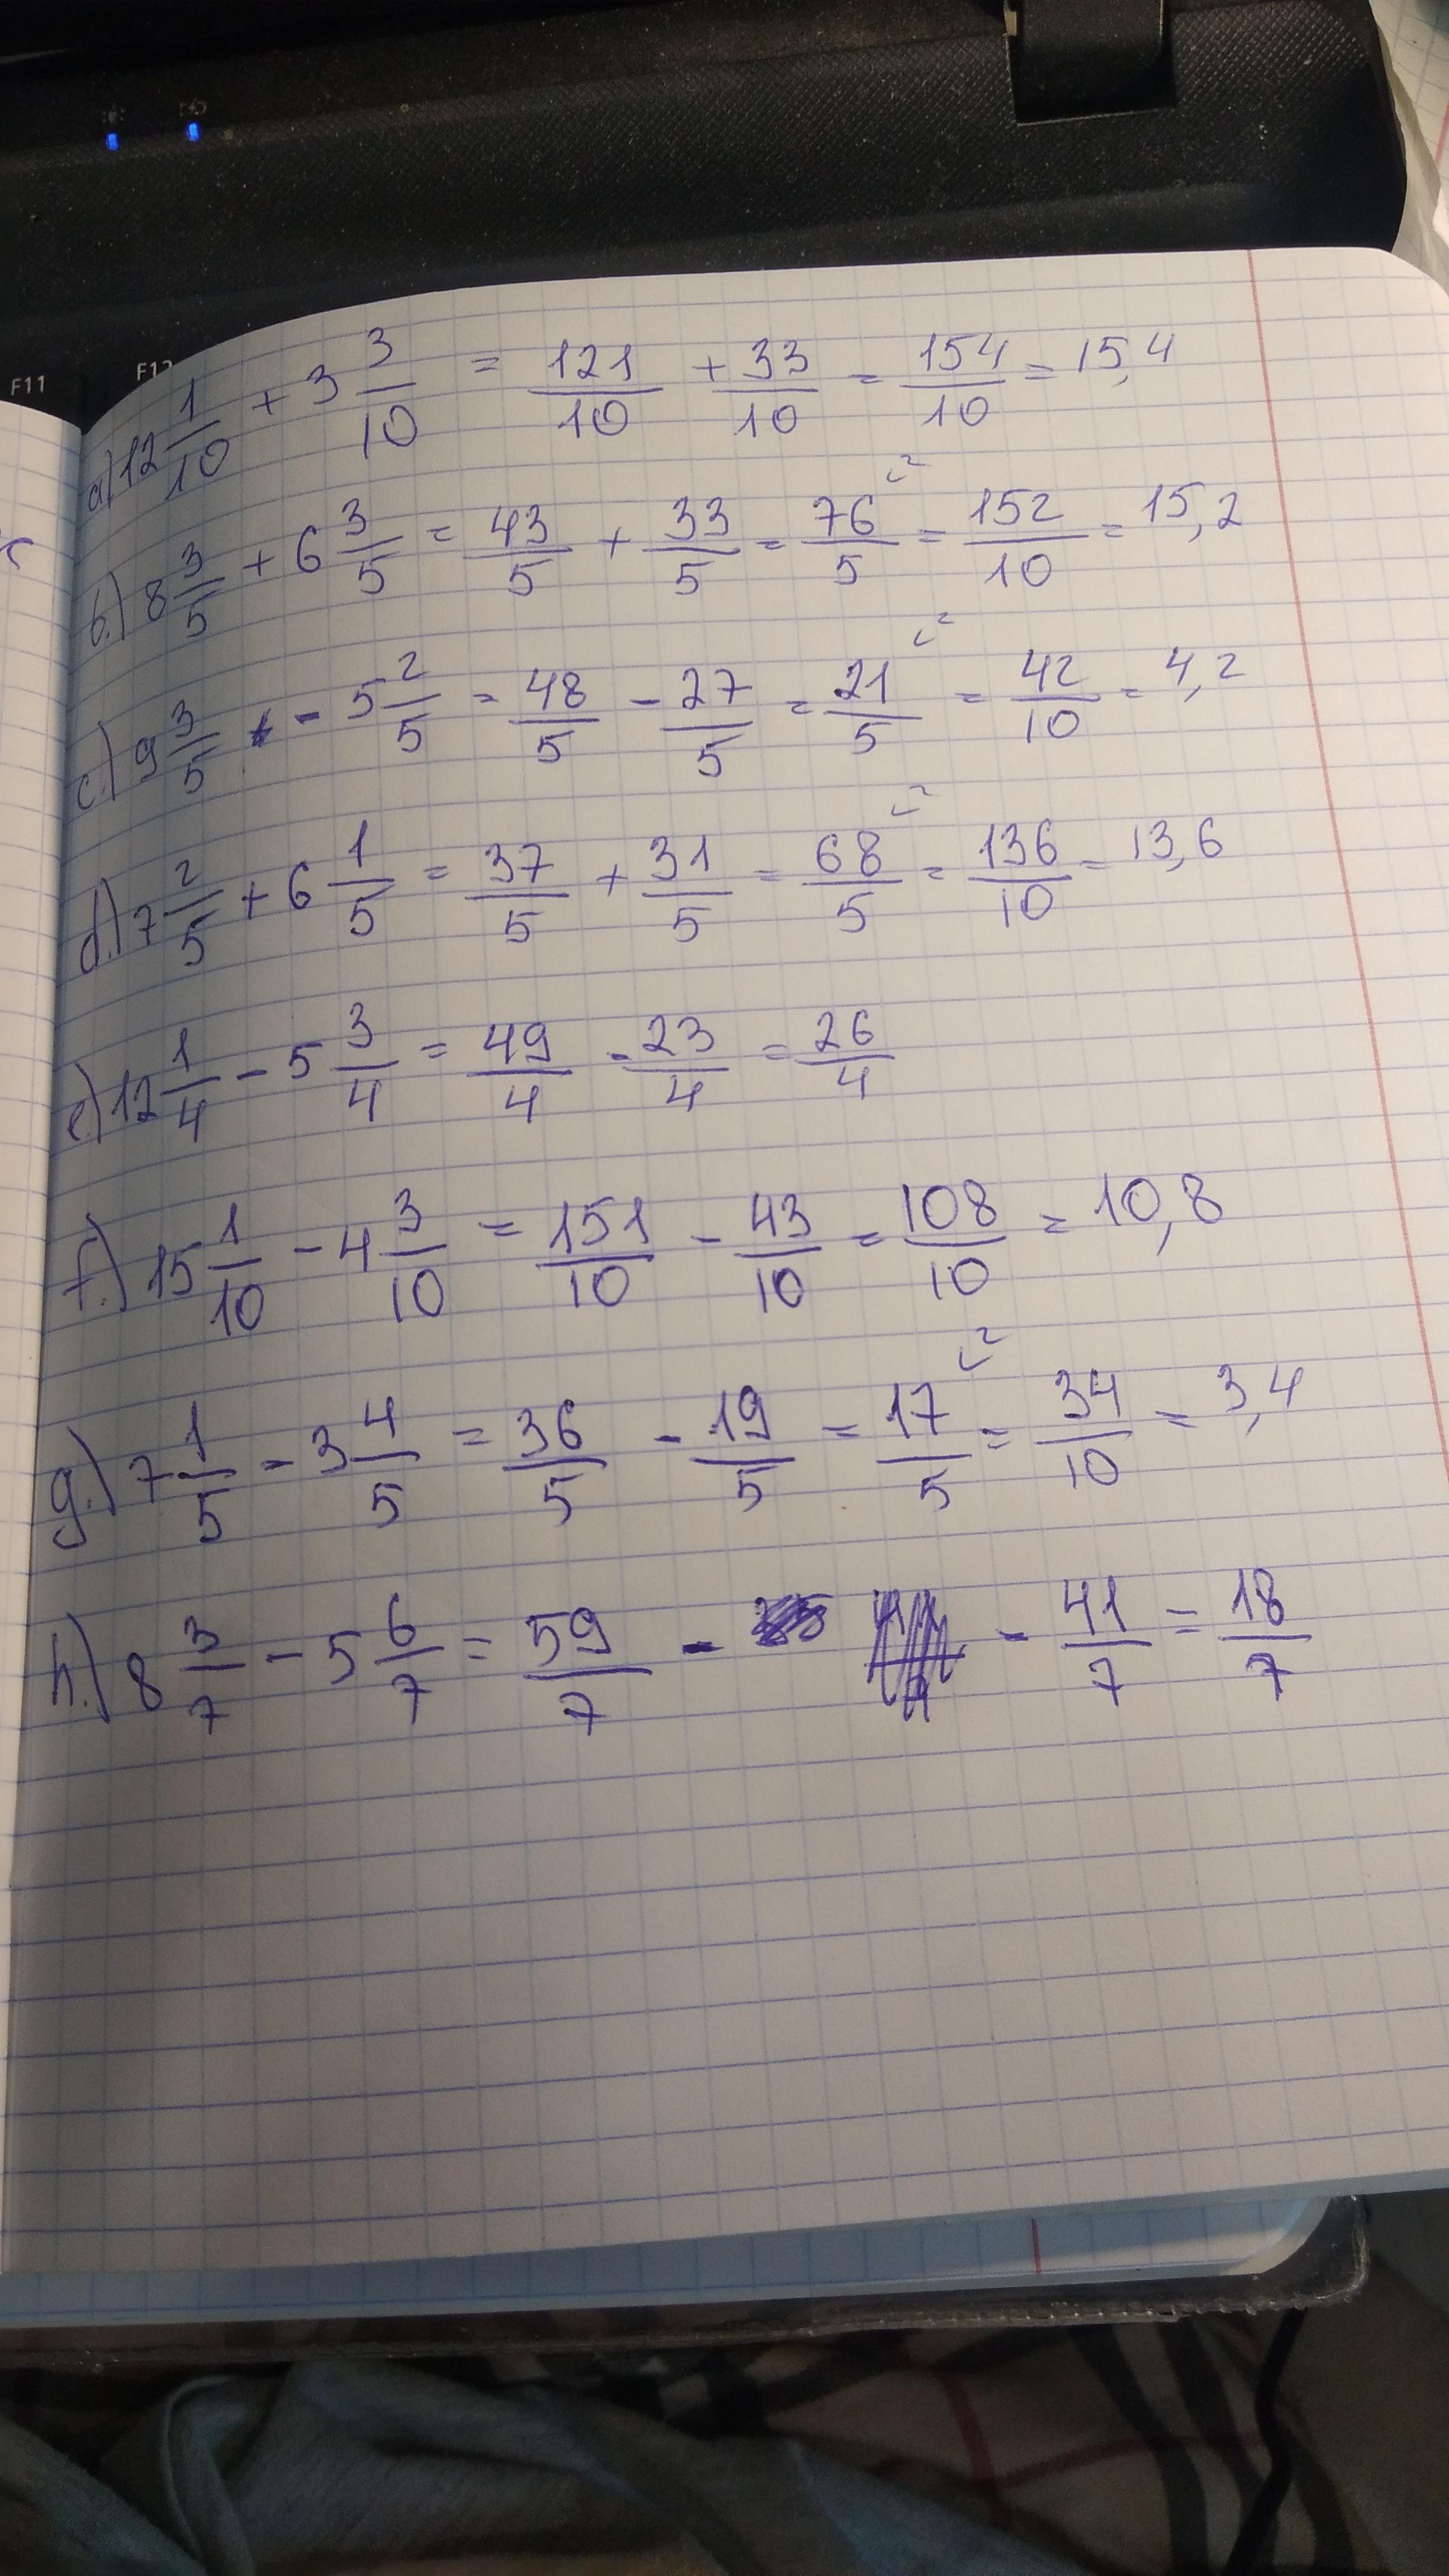 F11 F12
a) 12 1/10 + 3 3/10 = 121/10 + 33/10 = 154/10 = 15,4
b.) 8 3/5 + 6 3/5 = 43/5 + 33/5 = 76/5 ⁽² = 152/10 = 15,2
c.) 9 3/5 - 5 2/5 = 48/5 - 27/5 = 21/5 ⁽² = 42/10 = 4,2
d.) 7 2/5 + 6 1/5 = 37/5 + 31/5 = 68/5 ⁽² = 136/10 = 13,6
e) 12 1/4 - 5 3/4 = 49/4 - 23/4 = 26/4
f.) 15 1/10 - 4 3/10 = 151/10 - 43/10 = 108/10 = 10,8
g.) 7 1/5 - 3 4/5 = 36/5 - 19/5 = 17/5 ⁽² = 34/10 = 3,4
h.) 8 3/7 - 5 6/7 = 59/7 - - 41/7 = 18/7